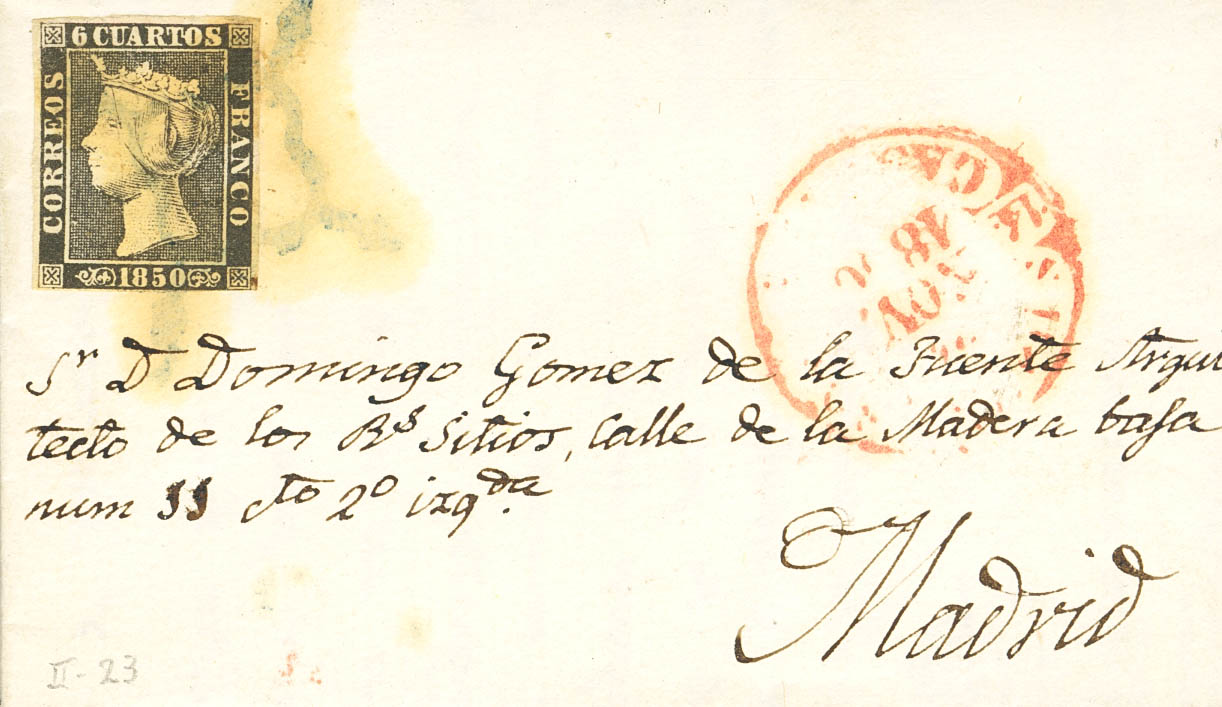 6 CUARTOS
CORREOS
FRANCO
1850
18
NOV
Sr D Domingo Gomez de la Fuente Arqui
tecto de los Rs Sitios, Calle de la Madera baja
num 11 cto 2o izqda.
Madrid
II-23